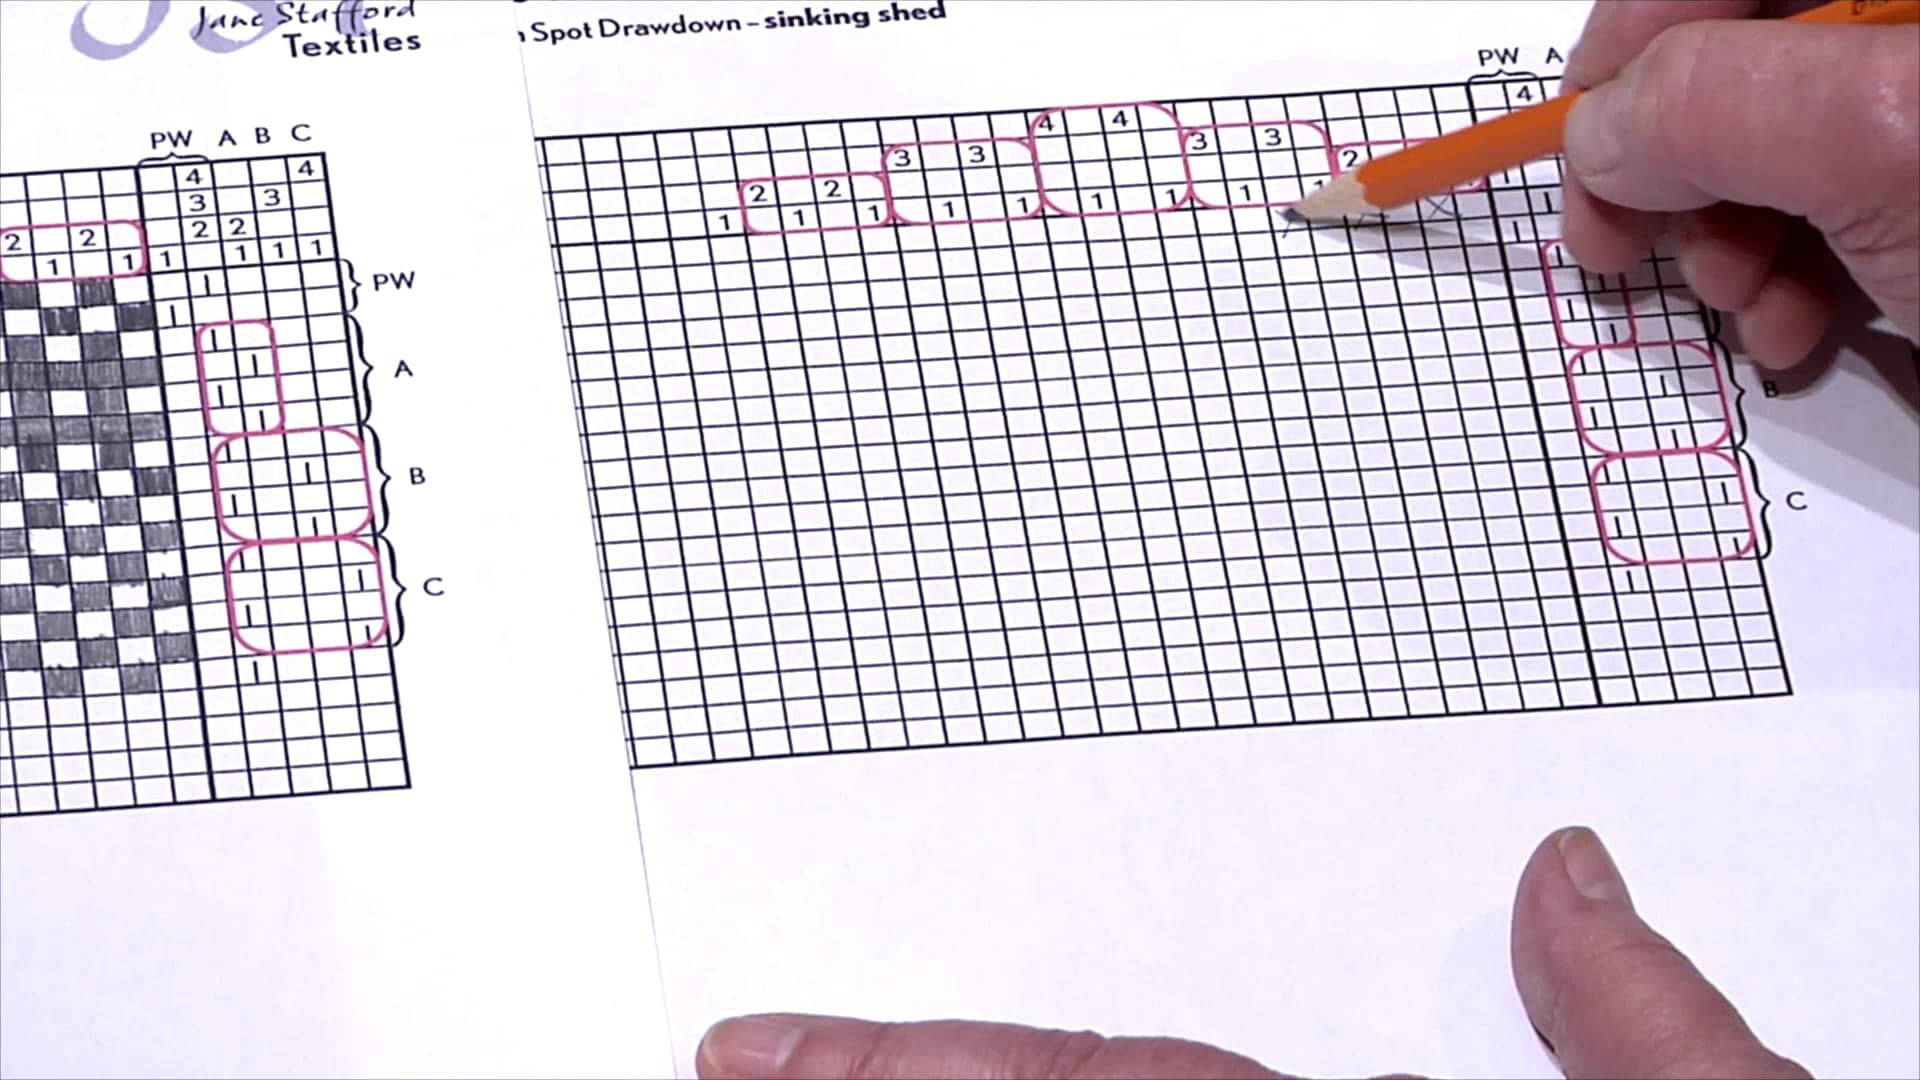 Jane Stafford
Textiles
Spot Drawdown – sinking shed
PW A B C
4
4
3 3
2 2
2 2 1 1 1 1 1 1
PW
A
B
C
PW A
4
4 4
3 3 3 3
2 2 2
1 1 1 1 1 1 1 1 1
B
C